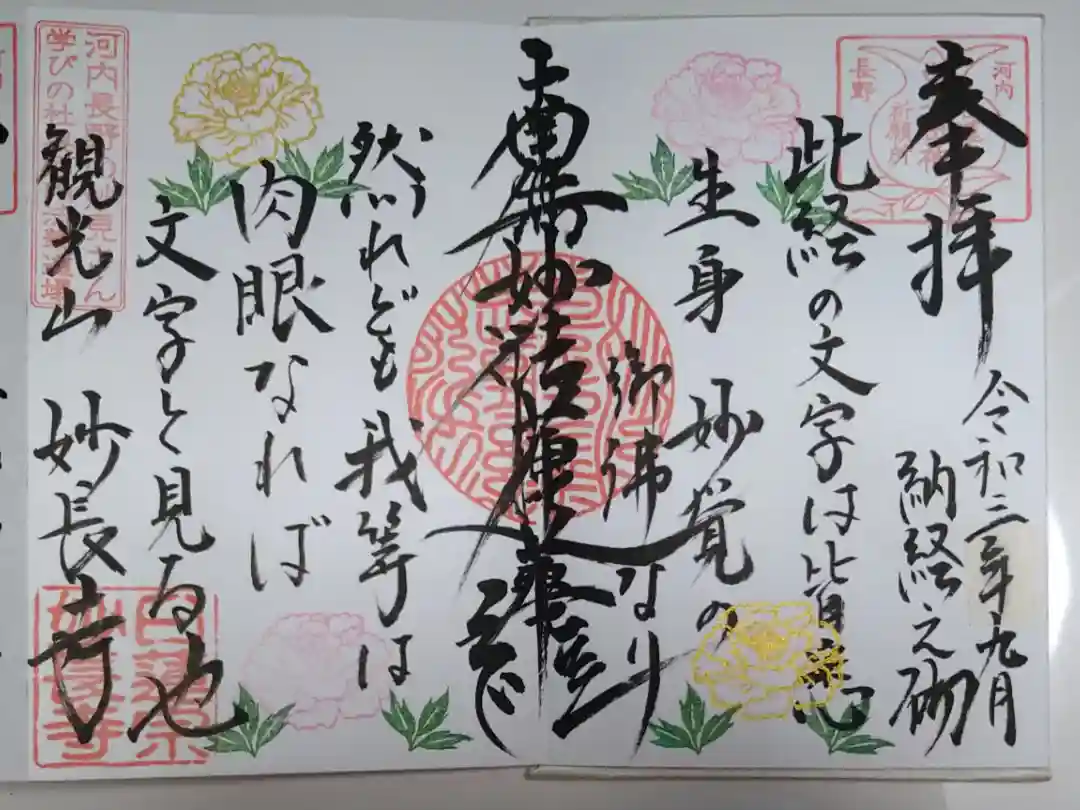 奉拝
河内
長野
令和二年九月
納経之砌
此経の文字は皆悉く
生身 妙覚の
御佛なり
南無妙法蓮華経
然れども我等は
肉眼なれば
文字と見る也
観光山 妙長寺
日蓮宗
妙長寺